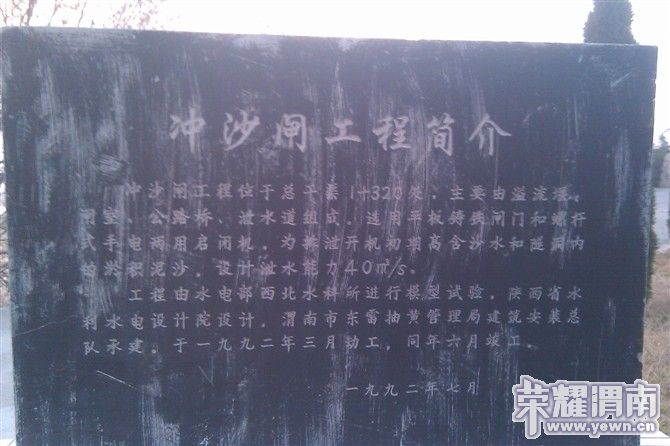 冲沙闸工程简介
冲沙闸工程位于总干渠1+320处。主要由溢流堰、
闸室、公路桥、泄水道组成。选用平板铸铁闸门和螺杆
式手电两用启闭机。为排泄开机初期高含沙水和隧洞内
的淤积泥沙。设计泄水能力40m³/s。
工程由水电部西北水科所进行模型试验，陕西省水
利水电设计院设计。渭南市东雷抽黄管理局建筑安装总
队承建。于一九九二年三月动工，同年六月竣工。
一九九二年七月
荣耀渭南
www.yewn.cn